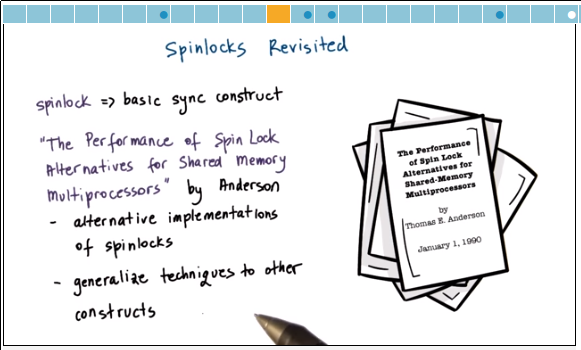 Spinlocks Revisited
spinlock => basic sync construct
"The Performance of Spin Lock
Alternatives for Shared Memory
Multiprocessors" by Anderson
- alternative implementations
of spinlocks
- generalize techniques to other
constructs
The Performance
of Spin Lock
Alternatives for
Shared-Memory
Multiprocessors
by
Thomas E. Anderson
January 1, 1990